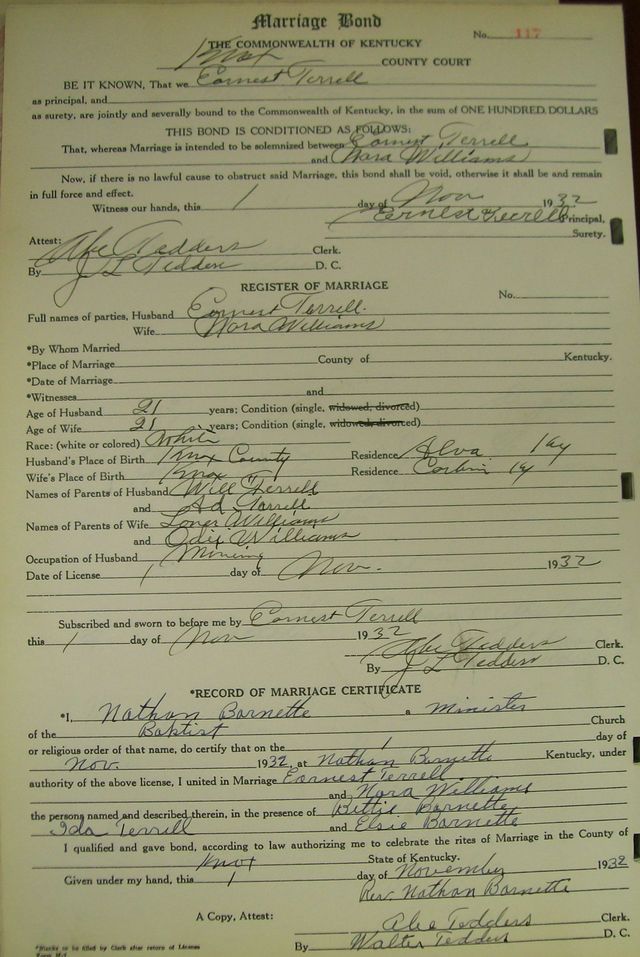 Marriage Bond
No. 117
THE COMMONWEALTH OF KENTUCKY
Knox COUNTY COURT
BE IT KNOWN, That we Earnest Terrell
as principal, and
as surety, are jointly and severally bound to the Commonwealth of Kentucky, in the sum of ONE HUNDRED DOLLARS
THIS BOND IS CONDITIONED AS FOLLOWS:
That, whereas Marriage is intended to be solemnized between Earnest Terrell
and Nora Williams
Now, if there is no lawful cause to obstruct said Marriage, this bond shall be void, otherwise it shall be and remain
in full force and effect.
Witness our hands, this 1 day of Nov 1932
Ernest Terrell Principal,
Surety.
Attest: Abe Tedders Clerk.
By J L Tedders D. C.
REGISTER OF MARRIAGE
No.
Full names of parties, Husband Earnest Terrell.
Wife Nora Williams
*By Whom Married
*Place of Marriage County of Kentucky.
*Date of Marriage
*Witnesses and
Age of Husband 21 years; Condition (single, widowed, divorced)
Age of Wife 21 years; Condition (single, widowed, divorced)
Race: (white or colored) White
Husband's Place of Birth Knox County Residence Alva Ky
Wife's Place of Birth Knox " Residence Corbin Ky
Names of Parents of Husband Will Terrell
and Ad Terrell
Names of Parents of Wife Williams
and Williams
Occupation of Husband Mining
Date of License 1 day of Nov. 1932
Subscribed and sworn to before me by Earnest Terrell
this 1 day of Nov 1932
Abe Tedders Clerk.
By J L Tedders D. C.
*RECORD OF MARRIAGE CERTIFICATE
*I, Nathan Barnette a Minister
of the Baptist Church
or religious order of that name, do certify that on the 1 day of
Nov. 1932, at Nathan Barnette Kentucky, under
authority of the above license, I united in Marriage Earnest Terrell
and Nora Williams
the persons named and described therein, in the presence of Bettie Barnette
Ida Terrell and Elsie Barnette
I qualified and gave bond, according to law authorizing me to celebrate the rites of Marriage in the County of
Knox State of Kentucky.
Given under my hand, this 1 day of November 1932
Rev. Nathan Barnette
A Copy, Attest: Abe Tedders Clerk.
By Walter Tedders D. C.
*Blanks to be filled by Clerk after return of License